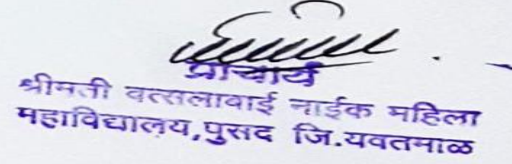 प्राचार्य
श्रीमती वत्सलाबाई नाईक महिला
महाविद्यालय,पुसद जि.यवतमाळ